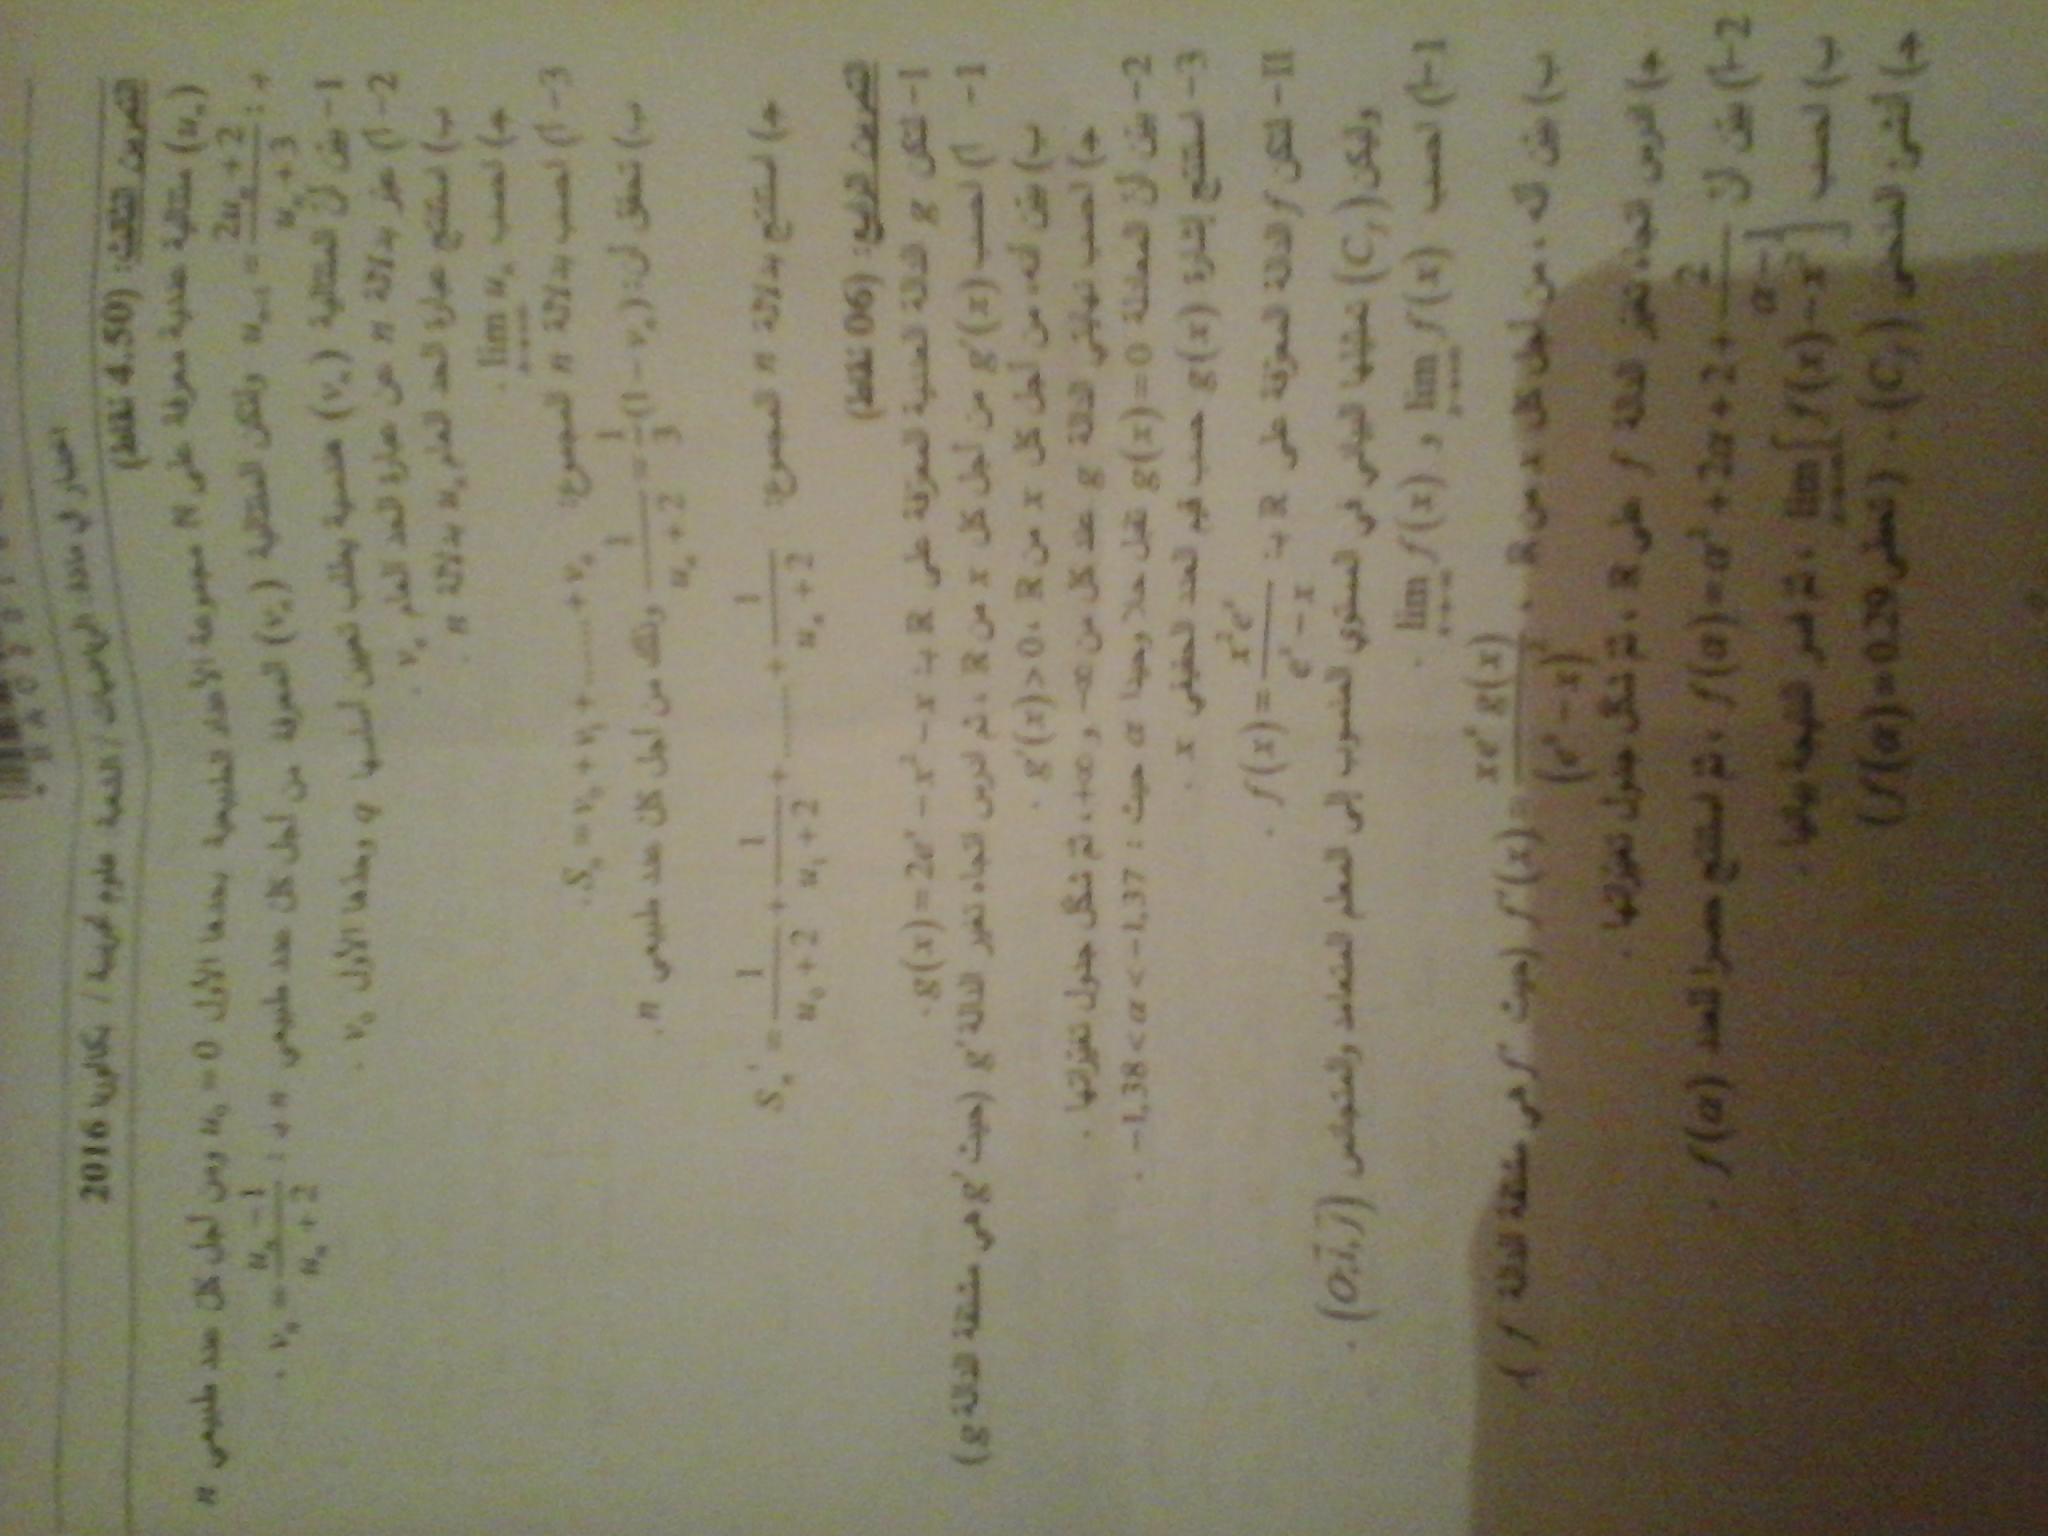 اختبار في مادة: الرياضيات / الشعبة: علوم تجريبية / بكالوريا 2016
التمرين الثالث: (4.50 نقاط)
(uₙ) متتالية عددية معرفة على N مجموعة الأعداد الطبيعية بحدها الأول u₀ = 0 ومن أجل كل عدد طبيعي n
بـ: uₙ₊₁ = (2uₙ + 2)/(uₙ + 3) ولتكن المتتالية (vₙ) المعرفة من أجل كل عدد طبيعي n بـ: vₙ = (uₙ − 1)/(uₙ + 2).
1- بيّن أنّ المتتالية (vₙ) هندسية يطلب تعيين أساسها q وحدّها الأول v₀.
2- أ) عبّر بدلالة n عن عبارة الحد العام vₙ.
ب) استنتج عبارة الحد العام uₙ بدلالة n.
جـ) احسب lim uₙ.
3- أ) احسب بدلالة n المجموع: Sₙ = v₀ + v₁ + ...... + vₙ.
ب) تحقق أن: 1/(uₙ + 2) = 1/3 (1 − vₙ) وذلك من أجل كل عدد طبيعي n.
جـ) استنتج بدلالة n المجموع: Sₙ' = 1/(u₀ + 2) + 1/(u₁ + 2) + ........ + 1/(uₙ + 2)
التمرين الرابع: (06 نقاط)
1- لتكن g الدالة العددية المعرّفة على R بـ: g(x) = 2eˣ − x² − x.
1- أ) احسب g'(x) من أجل كل x من R، ثم ادرس اتجاه تغير الدالة g' (حيث g' هي مشتقة الدالة g)
ب) بيّن أنه، من أجل كل x من R، g'(x) > 0.
جـ) احسب نهايتي الدالة g عند كل من −∞ و +∞، ثم شكّل جدول تغيّراتها.
2- بيّن أنّ المعادلة g(x) = 0 تقبل حلا وحيدا α حيث: −1,38 < α < −1,37.
3- استنتج إشارة g(x) حسب قيم العدد الحقيقي x.
II- لتكن f الدالة المعرّفة على R بـ: f(x) = x²eˣ/(eˣ − x).
وليكن (C_f) تمثيلها البياني في المستوي المنسوب إلى المعلم المتعامد والمتجانس (O; i, j).
1- أ) احسب lim f(x) و lim f(x).
ب) بيّن أنه، من أجل كل x من R، f'(x) = xeˣg(x)/(eˣ − x)² (حيث f' هي مشتقة الدالة f)
جـ) ادرس اتجاه تغيّر الدالة f على R، ثم شكّل جدول تغيّراتها.
2- أ) بيّن أنّ f(α) = α² + 2α + 2 + 2/(α − 1)، ثم استنتج حصرا للعدد f(α).
ب) احسب lim [f(x) − x²]، ثم فسر النتيجة بيانيا.
جـ) أنشئ المنحنى (C_f). (تعطى f(α) ≈ 0.29)